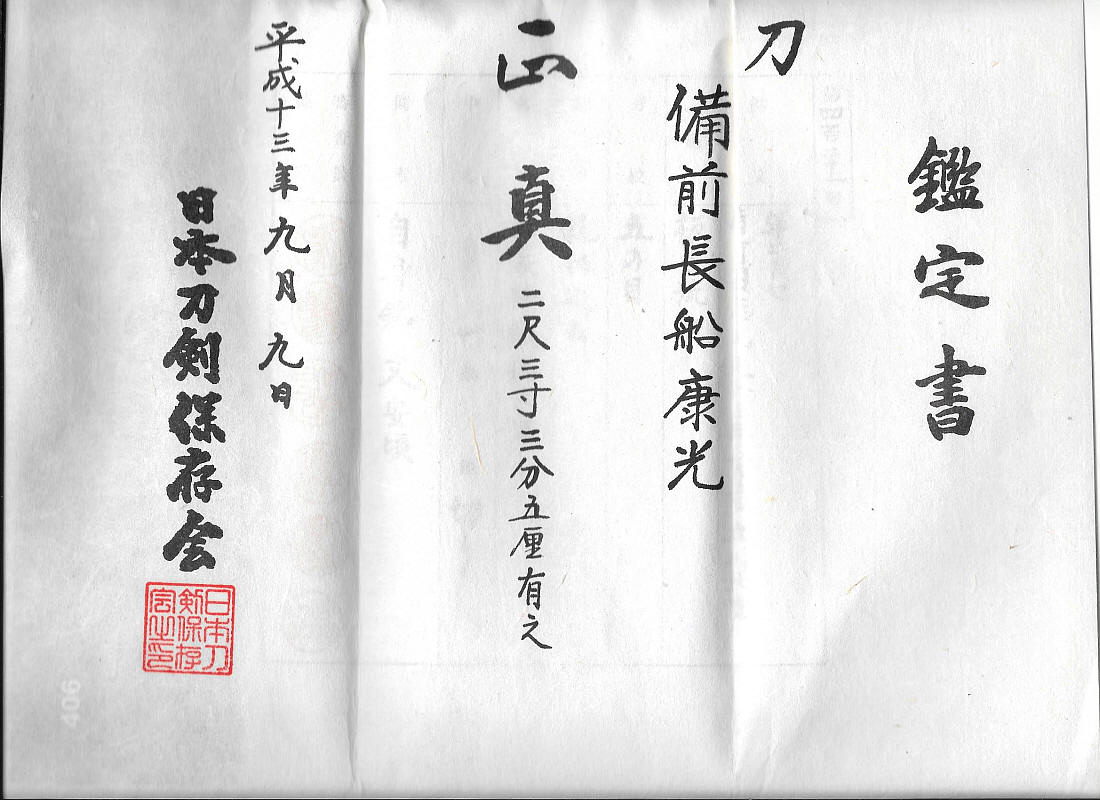 鑑定書
刀
備前長船康光
正真
二尺三寸三分五厘有之
平成十三年九月九日
日本刀剣保存会
日本刀
剣保存
会之印
406